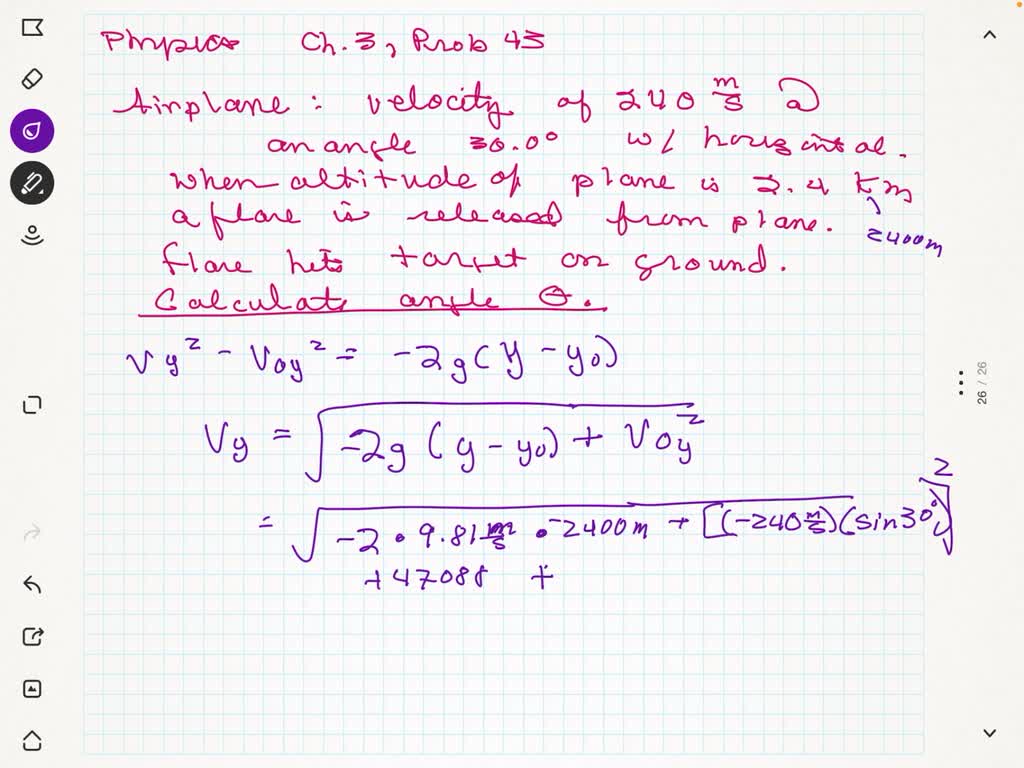 Physics Ch. 3, Prob 43
Airplane: velocity of 240 m/s @
an angle 30.0° w/ horizontal.
when altitude of plane is 2.4 km
a flare is released from plane.
2400m
flare hits target on ground.
Calculate angle θ.
Vy² - Voy² = -2g(y - yo)
Vy = √(-2g (y - yo) + Voy²)
= √(-2 • 9.81 m/s • -2400m + [(-240 m/s)(sin30°)]²
+47088 +
26 / 26